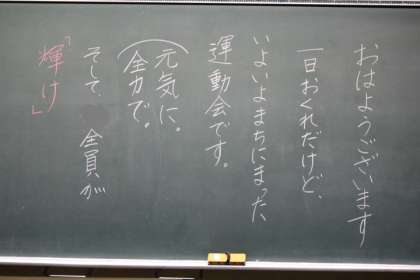 おはようございます
一日おくれだけど、
いよいよまちにまった
運動会です。
元気に。
全力で。
そして、全員が
「輝け」